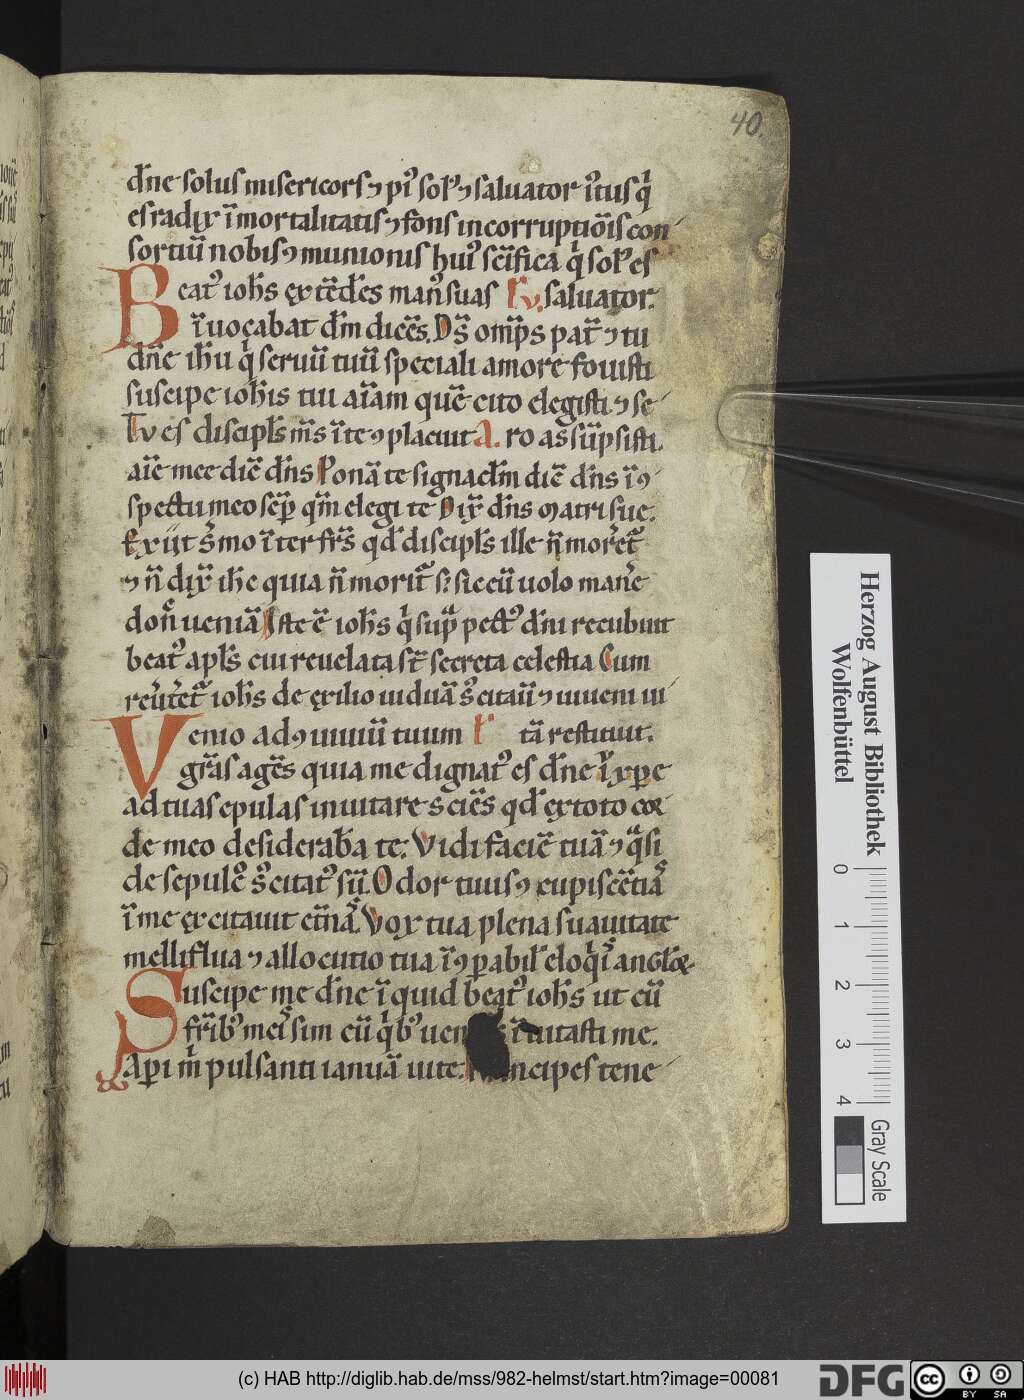 40.
dn̄e solus misericors ⁊ pi᷒ sol᷒ ⁊ saluator īt᷒us qͥ
es radix īmortalitatis ⁊ fons incorruptiōis con
sortiū nobis ꝯmunionis hui᷒ scīfica qͥ sol᷒ es
Beat᷒ ioh̄s extēdēs man᷒ suas R̄v. saluator.
īuocabat dm̄ dicēs. Ds̄ omp̄s pat̄ ⁊ tu
dn̄e ih̄u qͥ seruū tuū speciali amore fouisti
suscipe ioh̄is tui aīam quē cito elegisti ⁊ se
Tv es discipl̄s m̄s ī te ꝯplacuit A. ro assūpsisti.
aīe mee diē dn̄s Ponā te signaclm̄ diē dn̄s ī ꝯ
spectu meo sēp qm̄ elegi te Dix̄ dn̄s matri sue.
Exiit s̄mo īter fr̄s qd̄ discipl̄s ille n̄ moret᷑
⁊ n̄ dix̄ ih̄c quia n̄ morit᷑ s; sic eū uolo man̄e
don̄ ueniā Iste ē ioh̄s qͥ sup̄ pect᷒ dn̄i recubuit
beat᷒ apl̄s cui reuelata st̄ secreta celestia Cum
reu̇t̄et᷑ ioh̄s de exilio uiduā s̄citauī ⁊ iuueni ui
Venio ad ꝯuiuiū tuum R̄ tā restituit.
gr̄as agēs quia me dignat᷒ es dn̄e ih̄ xp̄e
ad tuas epulas inuitare sciēs qd̄ ex toto cor
de meo desideraba te. Vidi faciē tuā ⁊ qͣsi
de sepulc̊ s̄citat᷒ sū. Odor tuus ꝯcupiscētiā
ī me excitauit et̄nā. Vox tua plena suauitate
melliflua ⁊ allocutio tua īꝯparabil᷒ eloqͥis angl̄oꝝ
Suscipe me dn̄e ī quid beat᷒ ioh̄s ut cū
fr̄ib᷒ meis sim cū qͥb᷒ ueniens īuitasti me.
Api m̄ pulsanti ianuā uite. Principes tene
Herzog August Bibliothek
Wolfenbüttel
0 1 2 3 4
Gray Scale
(c) HAB http://diglib.hab.de/mss/982-helmst/start.htm?image=00081
DFG
cc BY SA